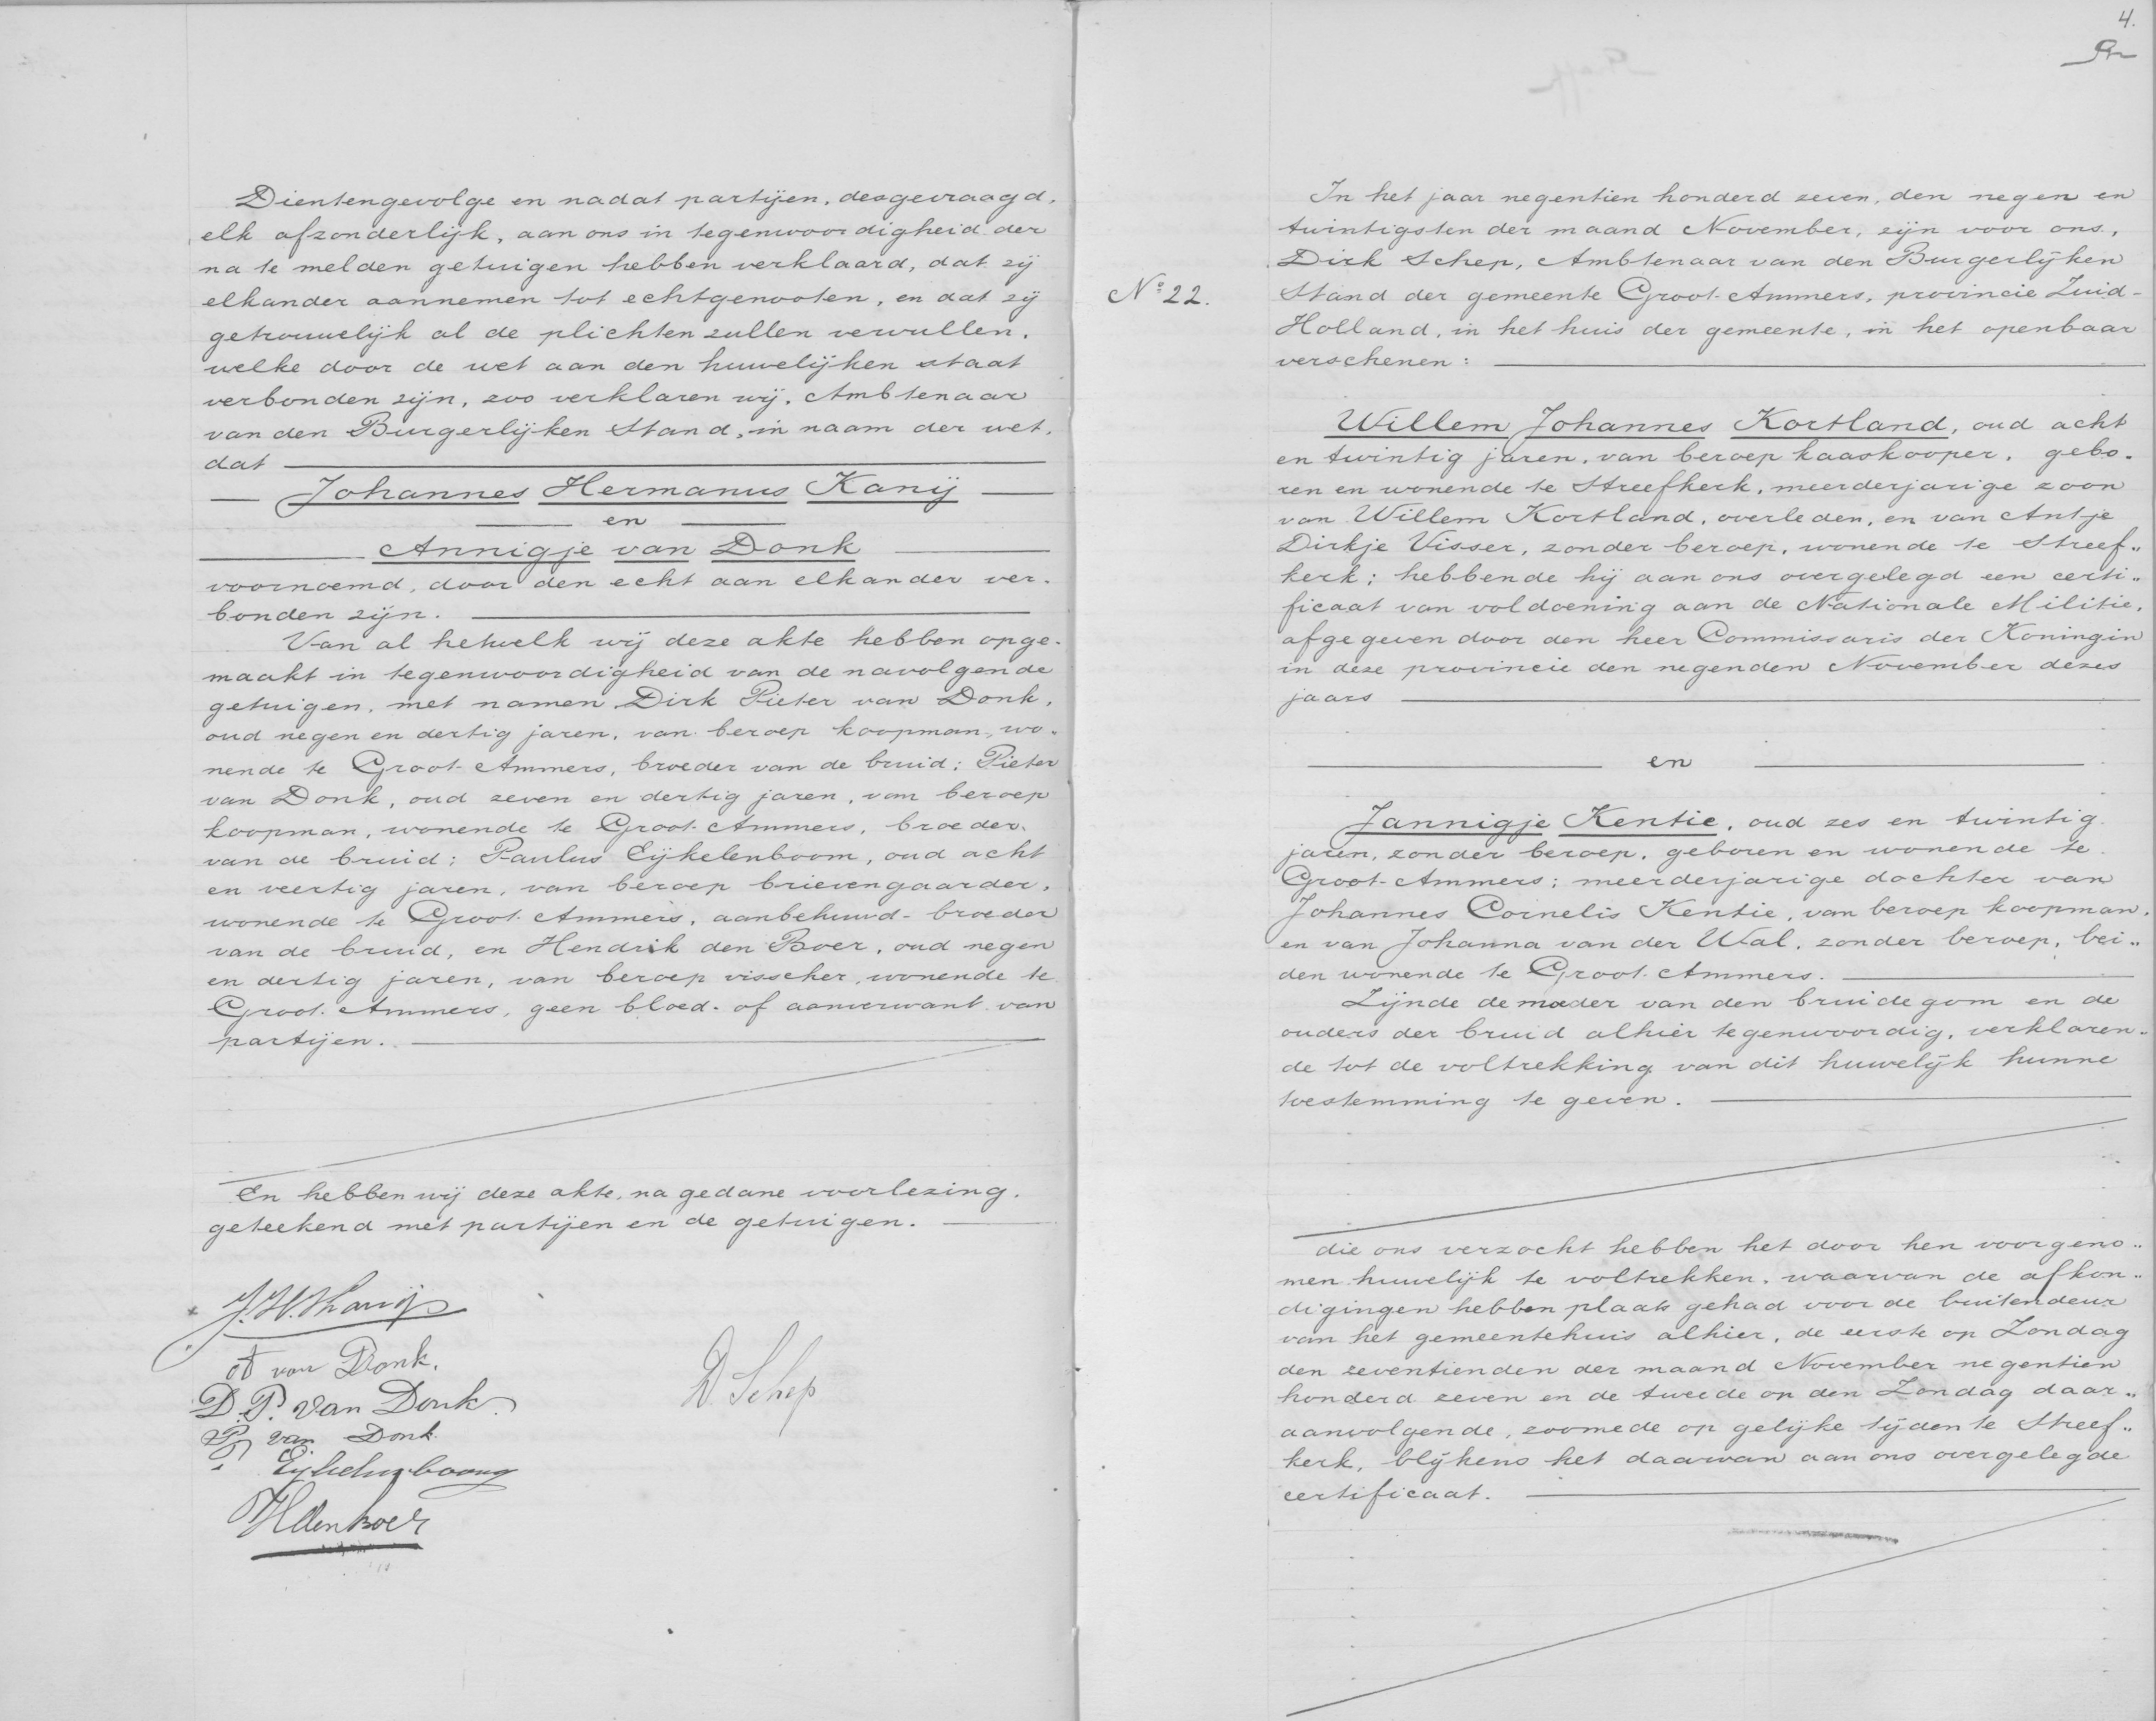 Dientengevolge en nadat partijen, desgevraagd,
elk afzonderlijk, aan ons in tegenwoordigheid der
na te melden getuigen hebben verklaard, dat zij
elkander aannemen tot echtgenooten, en dat zij
getrouwelijk al de plichten zullen vervullen,
welke door de wet aan den huwelijken staat
verbonden zijn, zoo verklaren wij, Ambtenaar
van den Burgerlijken Stand, in naam der wet,
dat
Johannes Hermanus Kanij
en
Annigje van Donk
voornoemd, door den echt aan elkander ver-
bonden zijn.
Van al hetwelk wij deze akte hebben opge-
maakt in tegenwoordigheid van de navolgende
getuigen, met namen Dirk Pieter van Donk,
oud negen en dertig jaren, van beroep koopman, wo-
nende te Groot-Ammers, broeder van de bruid; Pieter
van Donk, oud zeven en dertig jaren, van beroep
koopman, wonende te Groot-Ammers, broeder
van de bruid; Paulus Eijkelenboom, oud acht
en veertig jaren, van beroep brievengaarder,
wonende te Groot-Ammers, aanbehuwd-broeder
van de bruid, en Hendrik den Boer, oud negen
en dertig jaren, van beroep visscher, wonende te
Groot-Ammers, geen bloed- of aanverwant van
partijen.
En hebben wij deze akte, na gedane voorlezing,
geteekend met partijen en de getuigen.
J. H. Kanij
A van Donk.
D. P. van Donk
P van Donk
P Eijkelenboom
H den Boer
D Schep
4.
No 22.
In het jaar negentien honderd zeven, den negen en
twintigsten der maand November, zijn voor ons,
Dirk Schep, Ambtenaar van den Burgerlijken
Stand der gemeente Groot-Ammers, provincie Zuid-
Holland, in het huis der gemeente, in het openbaar
verschenen:
Willem Johannes Kortland, oud acht
en twintig jaren, van beroep kaaskooper, gebo-
ren en wonende te Streefkerk, meerderjarige zoon
van Willem Kortland, overleden, en van Antje
Dirkje Visser, zonder beroep, wonende te Streef„
kerk; hebbende hij aan ons overgelegd een certi„
ficaat van voldoening aan de Nationale Militie,
afgegeven door den heer Commissaris der Koningin
in deze provincie den negenden November dezes
jaars
en
Jannigje Kentie, oud zes en twintig
jaren, zonder beroep, geboren en wonende te
Groot-Ammers; meerderjarige dochter van
Johannes Cornelis Kentie, van beroep koopman,
en van Johanna van der Wal, zonder beroep, bei„
den wonende te Groot-Ammers.
Zijnde de moeder van den bruidegom en de
ouders der bruid alhier tegenwoordig, verklaren-
de tot de voltrekking van dit huwelijk hunne
toestemming te geven.
die ons verzocht hebben het door hen voorgeno„
men huwelijk te voltrekken, waarvan de afkon„
digingen hebben plaats gehad voor de buitendeur
van het gemeentehuis alhier, de eerste op Zondag
den zeventienden der maand November negentien
honderd zeven en de tweede op den Zondag daar„
aanvolgende, zoomede op gelijke tijden te Streef„
kerk, blijkens het daarvan aan ons overgelegde
certificaat.